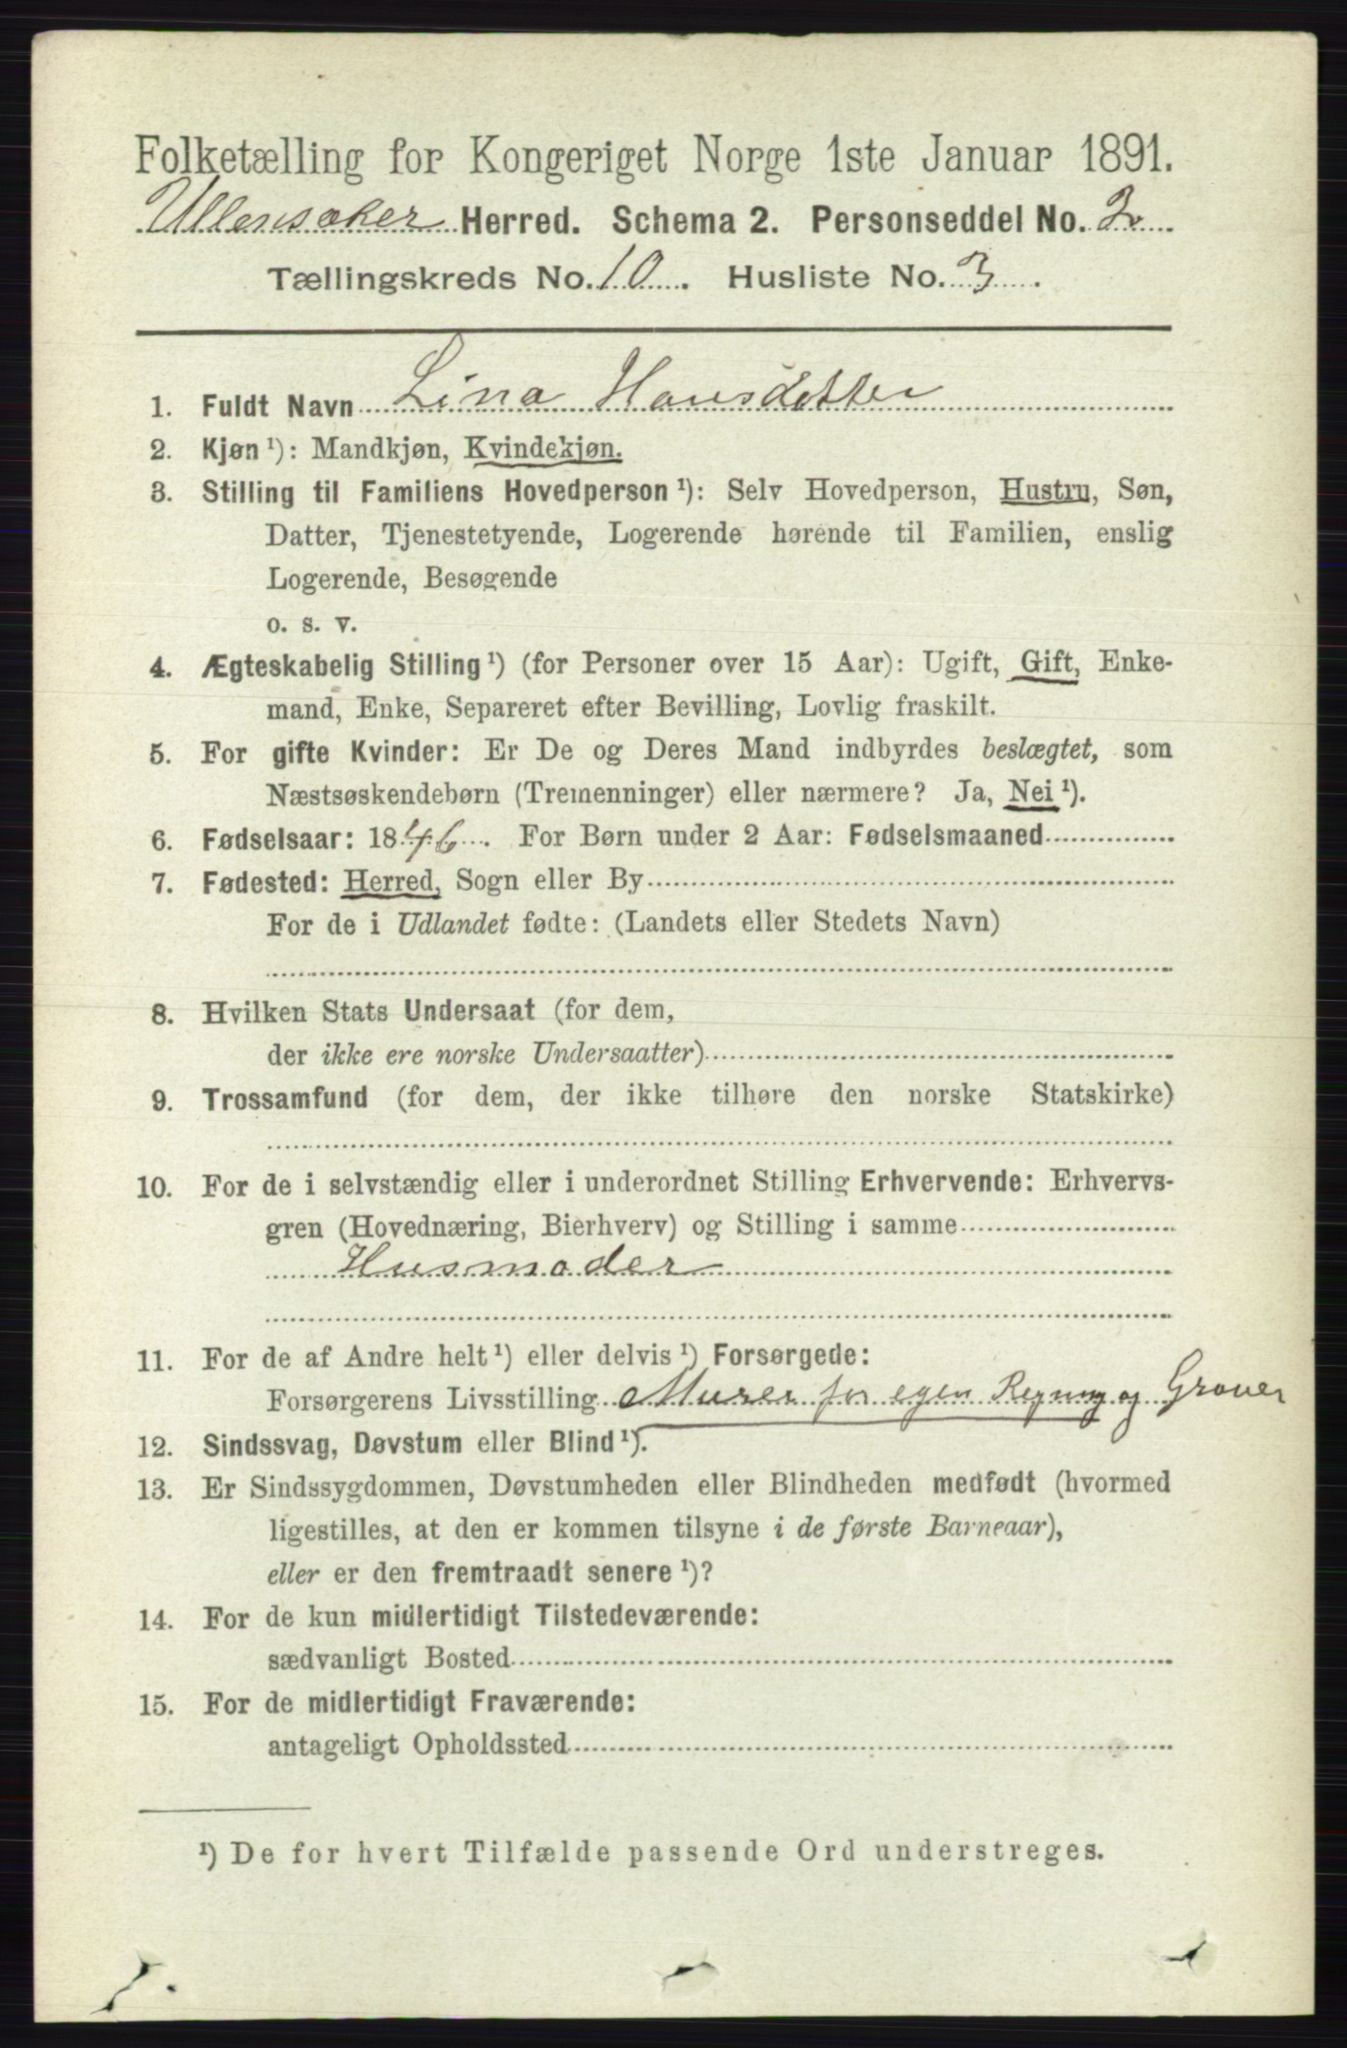 Folketælling for Kongeriget Norge 1ste Januar 1891.
Ullensaker Herred. Schema 2. Personseddel No. 2
Tællingskreds No. 10. Husliste No. 3.
1. Fuldt Navn Lina Hansdatter
2. Kjøn ¹): Mandkjøn, Kvindekjøn.
3. Stilling til Familiens Hovedperson ¹): Selv Hovedperson, Hustru, Søn,
Datter, Tjenestetyende, Logerende hørende til Familien, enslig
Logerende, Besøgende
o. s. v.
4. Ægteskabelig Stilling ¹) (for Personer over 15 Aar): Ugift, Gift, Enke-
mand, Enke, Separeret efter Bevilling, Lovlig fraskilt.
5. For gifte Kvinder: Er De og Deres Mand indbyrdes beslægtet, som
Næstsøskendebørn (Tremenninger) eller nærmere? Ja, Nei ¹).
6. Fødselsaar: 1846. For Børn under 2 Aar: Fødselsmaaned
7. Fødested: Herred, Sogn eller By
For de i Udlandet fødte: (Landets eller Stedets Navn)
8. Hvilken Stats Undersaat (for dem,
der ikke ere norske Undersaatter)
9. Trossamfund (for dem, der ikke tilhøre den norske Statskirke)
10. For de i selvstændig eller i underordnet Stilling Erhvervende: Erhvervs-
gren (Hovednæring, Bierhverv) og Stilling i samme
Husmoder
11. For de af Andre helt ¹) eller delvis ¹) Forsørgede:
Forsørgerens Livsstilling Murer for egen Regning og Graver
12. Sindssvag, Døvstum eller Blind ¹).
13. Er Sindssygdommen, Døvstumheden eller Blindheden medfødt (hvormed
ligestilles, at den er kommen tilsyne i de første Barneaar),
eller er den fremtraadt senere ¹)?
14. For de kun midlertidigt Tilstedeværende:
sædvanligt Bosted
15. For de midlertidigt Fraværende:
antageligt Opholdssted
¹) De for hvert Tilfælde passende Ord understreges.